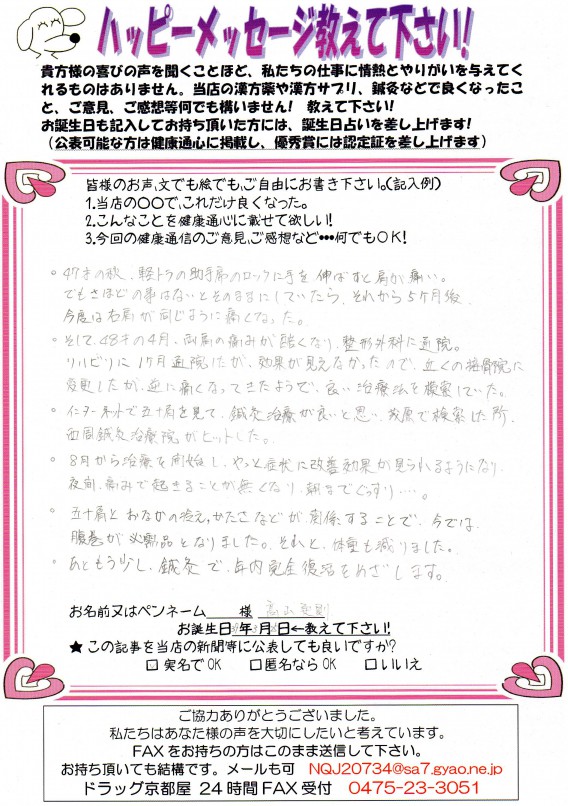 ハッピーメッセージ教えて下さい!
貴方様の喜びの声を聞くことほど、私たちの仕事に情熱とやりがいを与えてく
れるものはありません。当店の漢方薬や漢方サプリ、鍼灸などで良くなったこ
と、ご意見、ご感想等何でも構いません! 教えて下さい!
お誕生日も記入してお持ち頂いた方には、誕生日占いを差し上げます!
(公表可能な方は健康通心に掲載し、優秀賞には認定証を差し上げます)
皆様のお声、文でも絵でも、ご自由にお書き下さい。(記入例)
1.当店の〇〇で、これだけ良くなった。
2.こんなことを健康通心に載せて欲しい!
3.今回の健康通信のご意見、ご感想など•••何でもOK!
。47才の秋、軽トラの助手席のロックに手を伸ばすと肩が痛い。
でもさほどの事はないとそのままにしていたら、それから5ケ月後、
今度は右肩が同じように痛くなった。
。そして、48才の4月、両肩の痛みが酷くなり、整形外科に通院。
リハビリに1ケ月通院したが、効果が見えなかったので、近くの接骨院に
変更したが、逆に痛くなってきたようで、良い治療法を検索していた。
。インターネットで五十肩を見て、鍼灸治療が良いと思い、茂原で検索した所、
西岡鍼灸治療院がヒットした。
。8月から治療を開始し、やっと症状に改善効果が見られるようになり、
夜間、痛みで起きることが無くなり、朝までぐっすり…。
。五十肩とおなかの冷え、かたさなどが、関係することで、今では、
腹巻が必需品となりました。それと、体重も減りました。
。あともう少し、鍼灸で、年内完全復活をめざします。
お名前又はペンネーム 様
お誕生日 年 月 日←教えて下さい!
★この記事を当店の新聞等に公表しても良いですか?
□実名でOK □匿名ならOK □いいえ
ご協力ありがとうございました。
私たちはあなた様の声を大切にしたいと考えています。
FAXをお持ちの方はこのまま送信して下さい。
お持ち頂いても結構です。メールも可 NQJ20734@sa7.gyao.ne.jp
ドラッグ京都屋 24時間FAX受付 0475-23-3051